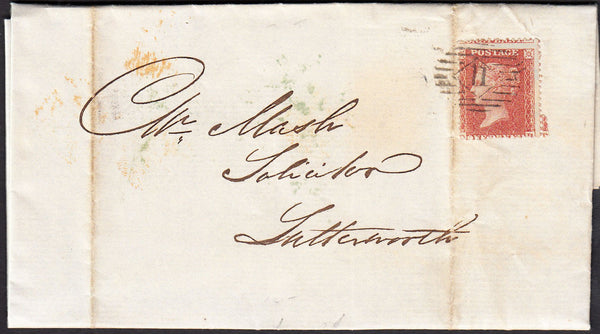 POSTAGE
Mr. Mash
Solicitor
Lutterworth